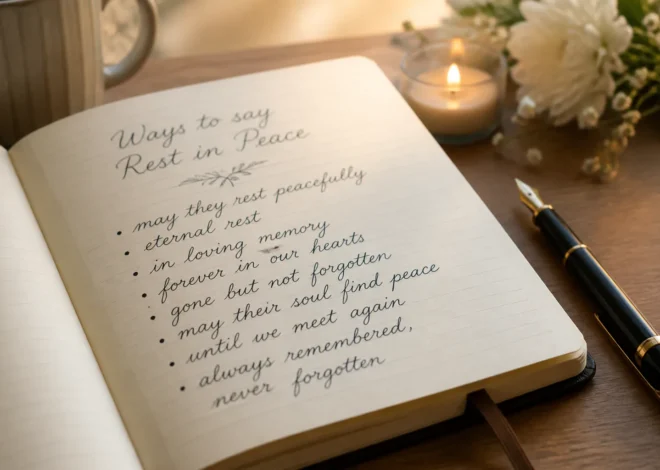 Ways to say
Rest in Peace
• may they rest peacefully
• eternal rest
• in loving memory
• forever in our hearts
• gone but not forgotten
• may their soul find peace
• until we meet again
• always remembered,
never forgotten